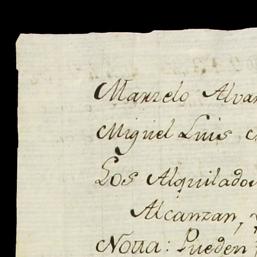 Marzelo Alvar
Miguel Luis
Los Alquilado
Alcanzan,
Notta: Pueden